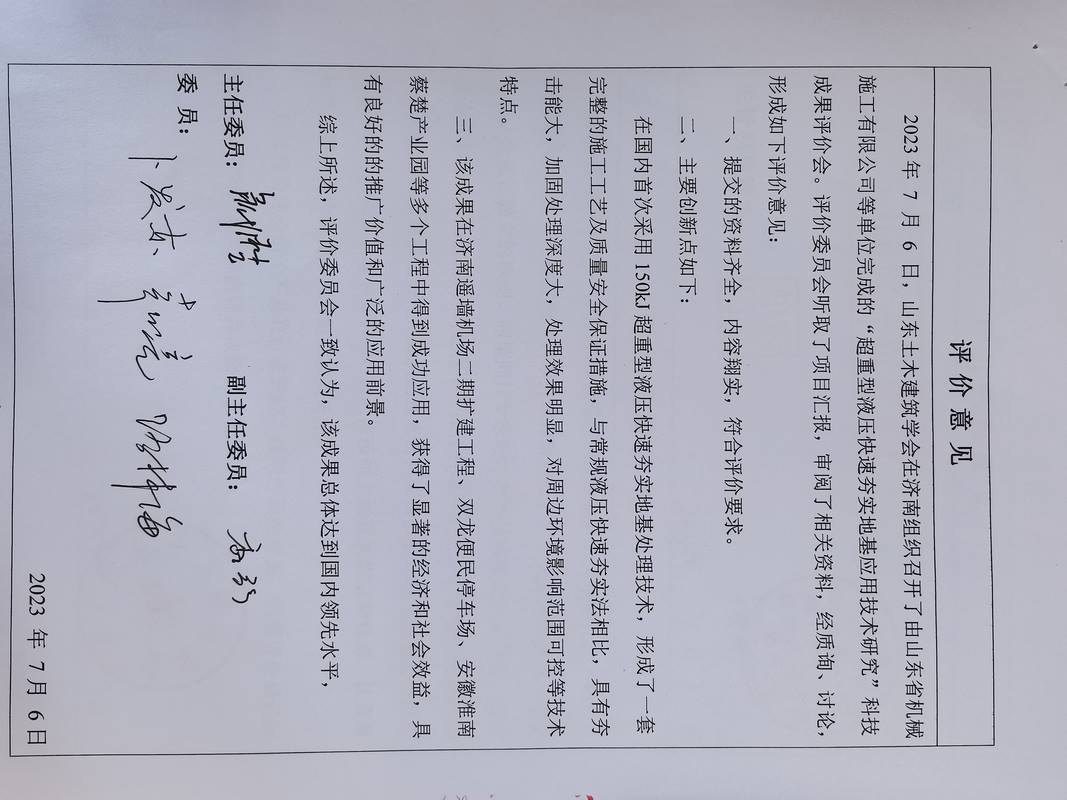 评价意见
2023年 7 月 6 日，山东土木建筑学会在济南组织召开了由山东省机械
施工有限公司等单位完成的“超重型液压快速夯实地基应用技术研究”科技
成果评价会。评价委员会听取了项目汇报，审阅了相关资料，经质询、讨论，
形成如下评价意见：
一、提交的资料齐全，内容翔实，符合评价要求。
二、主要创新点如下：
在国内首次采用 150kJ 超重型液压快速夯实地基处理技术，形成了一套
完整的施工工艺及质量安全保证措施，与常规液压快速夯实法相比，具有夯
击能大，加固处理深度大，处理效果明显，对周边环境影响范围可控等技术
特点。
三、该成果在济南遥墙机场二期扩建工程、双龙便民停车场、安徽淮南
蔡楚产业园等多个工程中得到成功应用，获得了显著的经济和社会效益，具
有良好的的推广价值和广泛的应用前景。
综上所述，评价委员会一致认为，该成果总体达到国内领先水平，
主任委员： 副主任委员：
委 员：
卜发东
2023 年 7 月 6 日